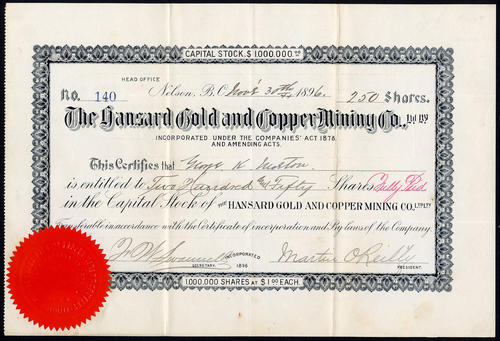 CAPITAL STOCK. $ 1.000.000.00
HEAD OFFICE
Nelson, B.C. Nov'r 30th 1896.
No. 140
250 Shares.
The Hansard Gold and Copper Mining Co., Ltd. Lty
INCORPORATED UNDER THE COMPANIES' ACT 1878,
AND AMENDING ACTS.
This Certifies that Geo. K. Morton
is entitled to Two Hundred & Fifty Shares Fully Paid
in the Capital Stock of THE HANSARD GOLD AND COPPER MINING CO. LTD LTY
Transferable in accordance with the Certificate of incorporation and By laws of the Company.
Martin O'Reilly
SECRETARY.
INCORPORATED
1896
PRESIDENT.
1,000,000 SHARES AT $1.00 EACH.